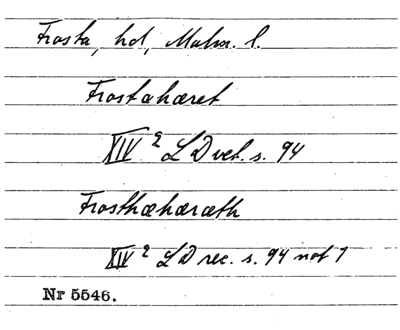 Frosta, hd, Malm. l.
Frostahæret
XIV 2 LD vet. s. 94
Frosthæhæræth
XIV 2 LD rec. s. 94 not 1
Nr 5546.